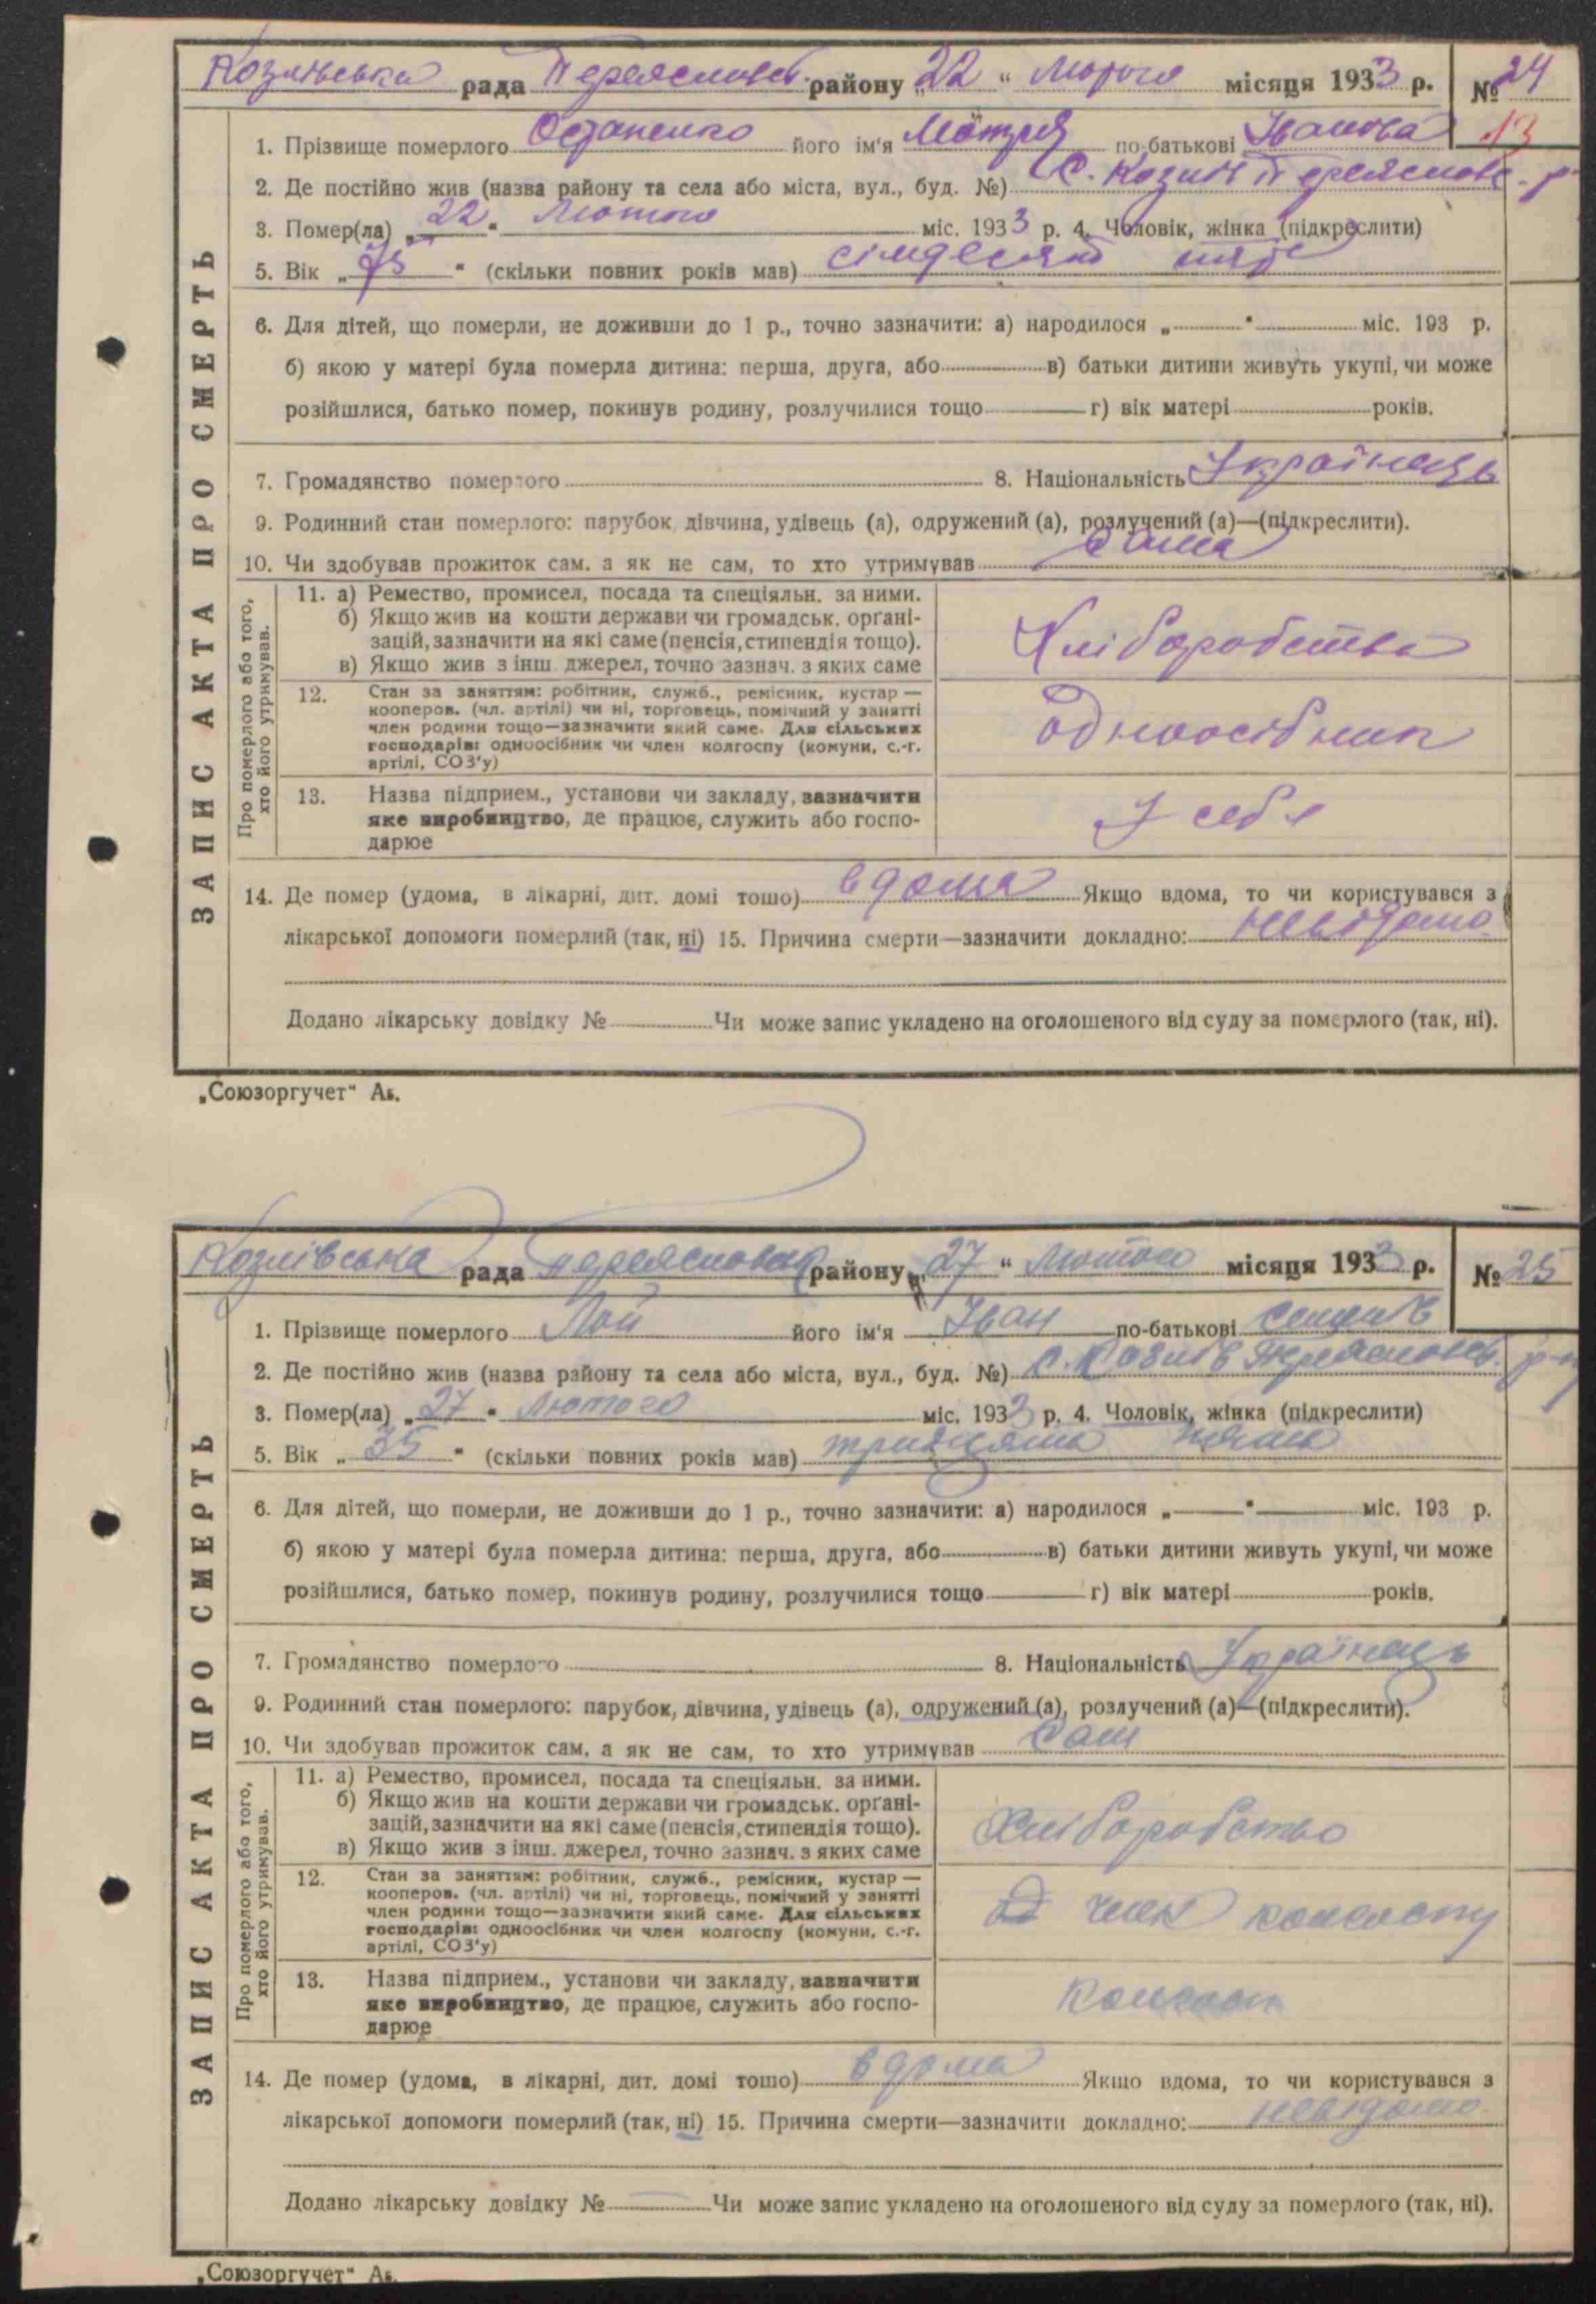 Козлівська рада Переяславськ району „22“ Лютого місяця 1933 р. № 24
13
1. Прізвище померлого Остапенко його ім'я Мотря по-батькові Іванова
2. Де постійно жив (назва району та села або міста, вул., буд. №) С. Козлів Переяславс. р.
3. Помер(ла) „22“ Лютого міс. 1933 р. 4. Чоловік, жінка (підкреслити)
5. Вік „75“ (скільки повних років мав) сімдесят пять
6. Для дітей, що померли, не доживши до 1 р., точно зазначити: а) народилося „ “ міс. 193 р.
б) якою у матері була померла дитина: перша, друга, або в) батьки дитини живуть укупі, чи може
розійшлися, батько помер, покинув родину, розлучилися тощо г) вік матері років.
7. Громадянство померлого 8. Національність Українець
9. Родинний стан померлого: парубок, дівчина, удівець (а), одружений (а), розлучений (а)—(підкреслити).
10. Чи здобував прожиток сам, а як не сам, то хто утримував сама
ЗАПИС АКТА ПРО СМЕРТЬ
Про померлого або того,
хто його утримував.
11. а) Ремество, промисел, посада та спеціяльн. за ними.
б) Якщо жив на кошти держави чи громадськ. орґані-
зацій, зазначити на які саме (пенсія, стипендія тощо).
в) Якщо жив з інш. джерел, точно зазнач. з яких саме
Хліборобства
12. Стан за заняттям: робітник, служб., ремісник, кустар —
кооперов. (чл. артілі) чи ні, торговець, помічний у занятті
член родини тощо—зазначити який саме. Для сільських
господарів: одноосібник чи член колгоспу (комуни, с.-г.
артілі, СОЗ'у)
Одноосібник
13. Назва підприєм., установи чи закладу, зазначити
яке виробництво, де працює, служить або госпо-
дарює
У себе
14. Де помер (удома, в лікарні, дит. домі тощо) вдома Якщо вдома, то чи користувався з
лікарської допомоги померлий (так, ні) 15. Причина смерти—зазначити докладно: невідомо.
Додано лікарську довідку № Чи може запис укладено на оголошеного від суду за померлого (так, ні).
„Союзоргучет“ Ав.
Козлівська рада Переяславськ району „27“ Лютого місяця 1933 р. № 25
1. Прізвище померлого Лой його ім'я Іван по-батькові
2. Де постійно жив (назва району та села або міста, вул., буд. №) с. Козлів Переяславс. р-ну
3. Помер(ла) „27“ Лютого міс. 1933 р. 4. Чоловік, жінка (підкреслити)
5. Вік „35“ (скільки повних років мав) тридцять пять
6. Для дітей, що померли, не доживши до 1 р., точно зазначити: а) народилося „ “ міс. 193 р.
б) якою у матері була померла дитина: перша, друга, або в) батьки дитини живуть укупі, чи може
розійшлися, батько помер, покинув родину, розлучилися тощо г) вік матері років.
7. Громадянство померлого 8. Національність Українець
9. Родинний стан померлого: парубок, дівчина, удівець (а), одружений (а), розлучений (а)—(підкреслити).
10. Чи здобував прожиток сам, а як не сам, то хто утримував сам
ЗАПИС АКТА ПРО СМЕРТЬ
Про померлого або того,
хто його утримував.
11. а) Ремество, промисел, посада та спеціяльн. за ними.
б) Якщо жив на кошти держави чи громадськ. орґані-
зацій, зазначити на які саме (пенсія, стипендія тощо).
в) Якщо жив з інш. джерел, точно зазнач. з яких саме
Хліборобство
12. Стан за заняттям: робітник, служб., ремісник, кустар —
кооперов. (чл. артілі) чи ні, торговець, помічний у занятті
член родини тощо—зазначити який саме. Для сільських
господарів: одноосібник чи член колгоспу (комуни, с.-г.
артілі, СОЗ'у)
член колгоспу
13. Назва підприєм., установи чи закладу, зазначити
яке виробництво, де працює, служить або госпо-
дарює
Колгосп
14. Де помер (удома, в лікарні, дит. домі тощо) вдома Якщо вдома, то чи користувався з
лікарської допомоги померлий (так, ні) 15. Причина смерти—зазначити докладно: невідомо.
Додано лікарську довідку № Чи може запис укладено на оголошеного від суду за померлого (так, ні).
„Союзоргучет“ Ав.